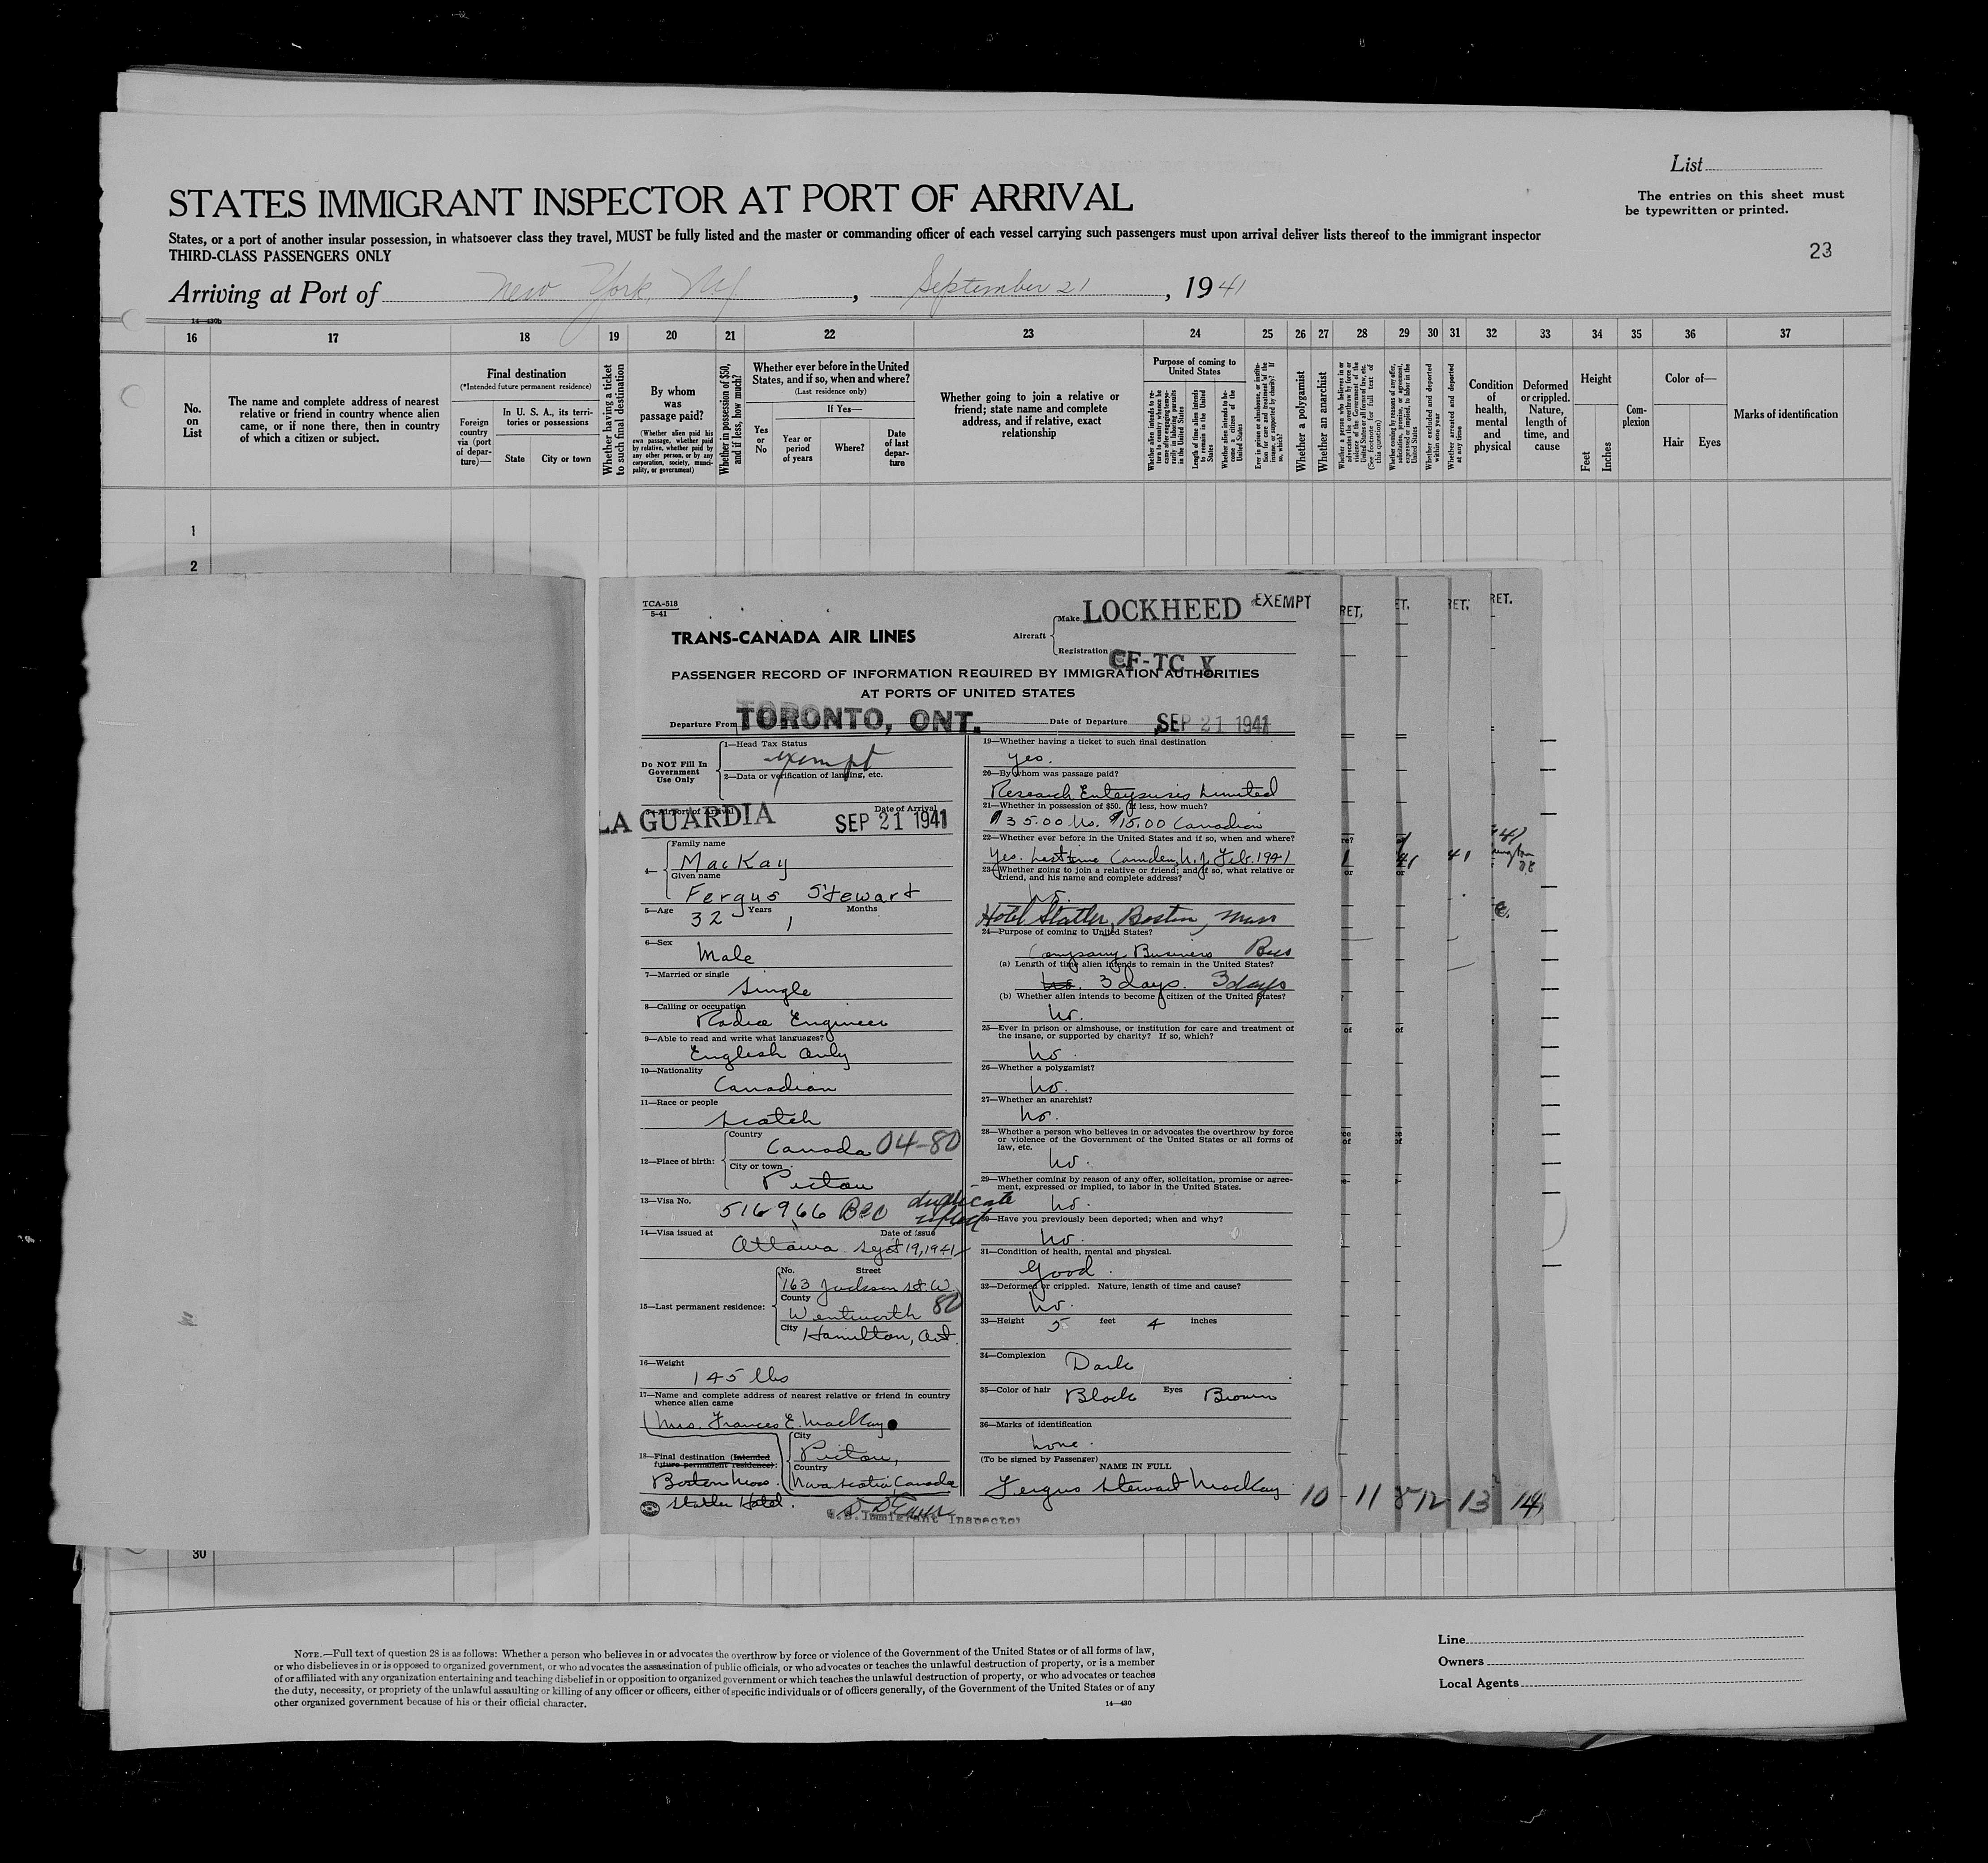 List
STATES IMMIGRANT INSPECTOR AT PORT OF ARRIVAL
The entries on this sheet must
be typewritten or printed.
States, or a port of another insular possession, in whatsoever class they travel, MUST be fully listed and the master or commanding officer of each vessel carrying such passengers must upon arrival deliver lists thereof to the immigrant inspector
THIRD-CLASS PASSENGERS ONLY
23
Arriving at Port of New York, NY, September 21, 1941
14—430b
16 17 18 19 20 21 22 23 24 25 26 27 28 29 30 31 32 33 34 35 36 37
No.
on
List
The name and complete address of nearest
relative or friend in country whence alien
came, or if none there, then in country
of which a citizen or subject.
Final destination
(*Intended future permanent residence)
Foreign
country
via (port
of depar-
ture)—
In U. S. A., its terri-
tories or possessions
State City or town
Whether having a ticket
to such final destination
By whom
was
passage paid?
(Whether alien paid his
own passage, whether paid
by relative, whether paid by
any other person, or by any
corporation, society, munici-
pality, or government)
Whether in possession of $50,
and if less, how much?
Whether ever before in the United
States, and if so, when and where?
(Last residence only)
If Yes—
Yes
or
No
Year or
period
of years
Where?
Date
of last
depar-
ture
Whether going to join a relative or
friend; state name and complete
address, and if relative, exact
relationship
Purpose of coming to
United States
Whether alien intends to re-
turn to country whence he
came after engaging tempo-
rarily in laboring pursuits
in the United States
Length of time alien intends
to remain in the United
States
Whether alien intends to be-
come a citizen of the
United States
Ever in prison or almshouse, or institu-
tion for care and treatment of the
insane, or supported by charity? If
so, which?
Whether a polygamist
Whether an anarchist
Whether a person who believes in or
advocates the overthrow by force or
violence of the Government of the
United States or all forms of law, etc.
(See footnote for full text of
this question)
Whether coming by reasons of any offer,
solicitation, promise, or agreement,
expressed or implied, to labor in the
United States
Whether ever excluded and deported
within one year
Whether arrested and deported
at any time
Condition
of
health,
mental
and
physical
Deformed
or crippled.
Nature,
length of
time, and
cause
Height
Feet
Inches
Com-
plexion
Color of—
Hair Eyes
Marks of identification
1
2
TCA-518
5-41
TRANS-CANADA AIR LINES
Aircraft
Make LOCKHEED
EXEMPT
Registration CF-TC X
PASSENGER RECORD OF INFORMATION REQUIRED BY IMMIGRATION AUTHORITIES
AT PORTS OF UNITED STATES
Departure From TORONTO, ONT. Date of Departure SEP 21 1941
Do NOT Fill In
Government
Use Only
1—Head Tax Status
exempt
2—Data or verification of landing, etc.
3—Airport of Arrival Date of Arrival
LA GUARDIA SEP 21 1941
4—
Family name
MacKay
Given name
Fergus Stewart
5—Age 32 Years 1 Months
6—Sex
Male
7—Married or single
Single
8—Calling or occupation
Radio Engineer
9—Able to read and write what languages?
English Only
10—Nationality
Canadian
11—Race or people
Scotch
12—Place of birth:
Country
Canada 04-80
City or town
Pictou
13—Visa No.
516966 duplicate
14—Visa issued at Date of issue
Ottawa Sept 19, 1941
15—Last permanent residence:
No. Street
163 Jackson St. W.
County
Wentworth 80
City Hamilton, Ont.
16—Weight
145 lbs
17—Name and complete address of nearest relative or friend in country
whence alien came
Mrs. Frances E. MacKay
18—Final destination (Intended
future permanent residence):
Boston Mass.
Statler Hotel.
City
Pictou,
Country
Nova Scotia, Canada
U.S. Immigrant Inspector
19—Whether having a ticket to such final destination
Yes.
20—By whom was passage paid?
Research Enterprises Limited
21—Whether in possession of $50. (If less, how much?
$35.00 U.S. $15.00 Canadian
22—Whether ever before in the United States and if so, when and where?
Yes. Last time Camden, N.J. Feb. 1941
23—(Whether going to join a relative or friend; and if so, what relative or
friend, and his name and complete address?
No.
Hotel Statler, Boston, Mass
24—Purpose of coming to United States?
Company Business Bus
(a) Length of time alien intends to remain in the United States?
3 days. 3 days
(b) Whether alien intends to become a citizen of the United States?
No.
25—Ever in prison or almshouse, or institution for care and treatment of
the insane, or supported by charity? If so, which?
No.
26—Whether a polygamist?
No.
27—Whether an anarchist?
No.
28—Whether a person who believes in or advocates the overthrow by force
or violence of the Government of the United States or all forms of
law, etc.
No.
29—Whether coming by reason of any offer, solicitation, promise or agree-
ment, expressed or implied, to labor in the United States.
No.
30—Have you previously been deported; when and why?
No.
31—Condition of health, mental and physical.
Good.
32—Deformed or crippled. Nature, length of time and cause?
No.
33—Height 5 feet 4 inches
34—Complexion Dark
35—Color of hair Black Eyes Brown
36—Marks of identification
None.
(To be signed by Passenger)
NAME IN FULL
Fergus Stewart MacKay
10 - 11 12 13 14
RET, ET. RET, RET.
30
NOTE.—Full text of question 28 is as follows: Whether a person who believes in or advocates the overthrow by force or violence of the Government of the United States or of all forms of law,
or who disbelieves in or is opposed to organized government, or who advocates the assassination of public officials, or who advocates or teaches the unlawful destruction of property, or is a member
of or affiliated with any organization entertaining and teaching disbelief in or opposition to organized government or which teaches the unlawful destruction of property, or who advocates or teaches
the duty, necessity, or propriety of the unlawful assaulting or killing of any officer or officers, either of specific individuals or of officers generally, of the Government of the United States or of any
other organized government because of his or their official character.
14—430
Line
Owners
Local Agents